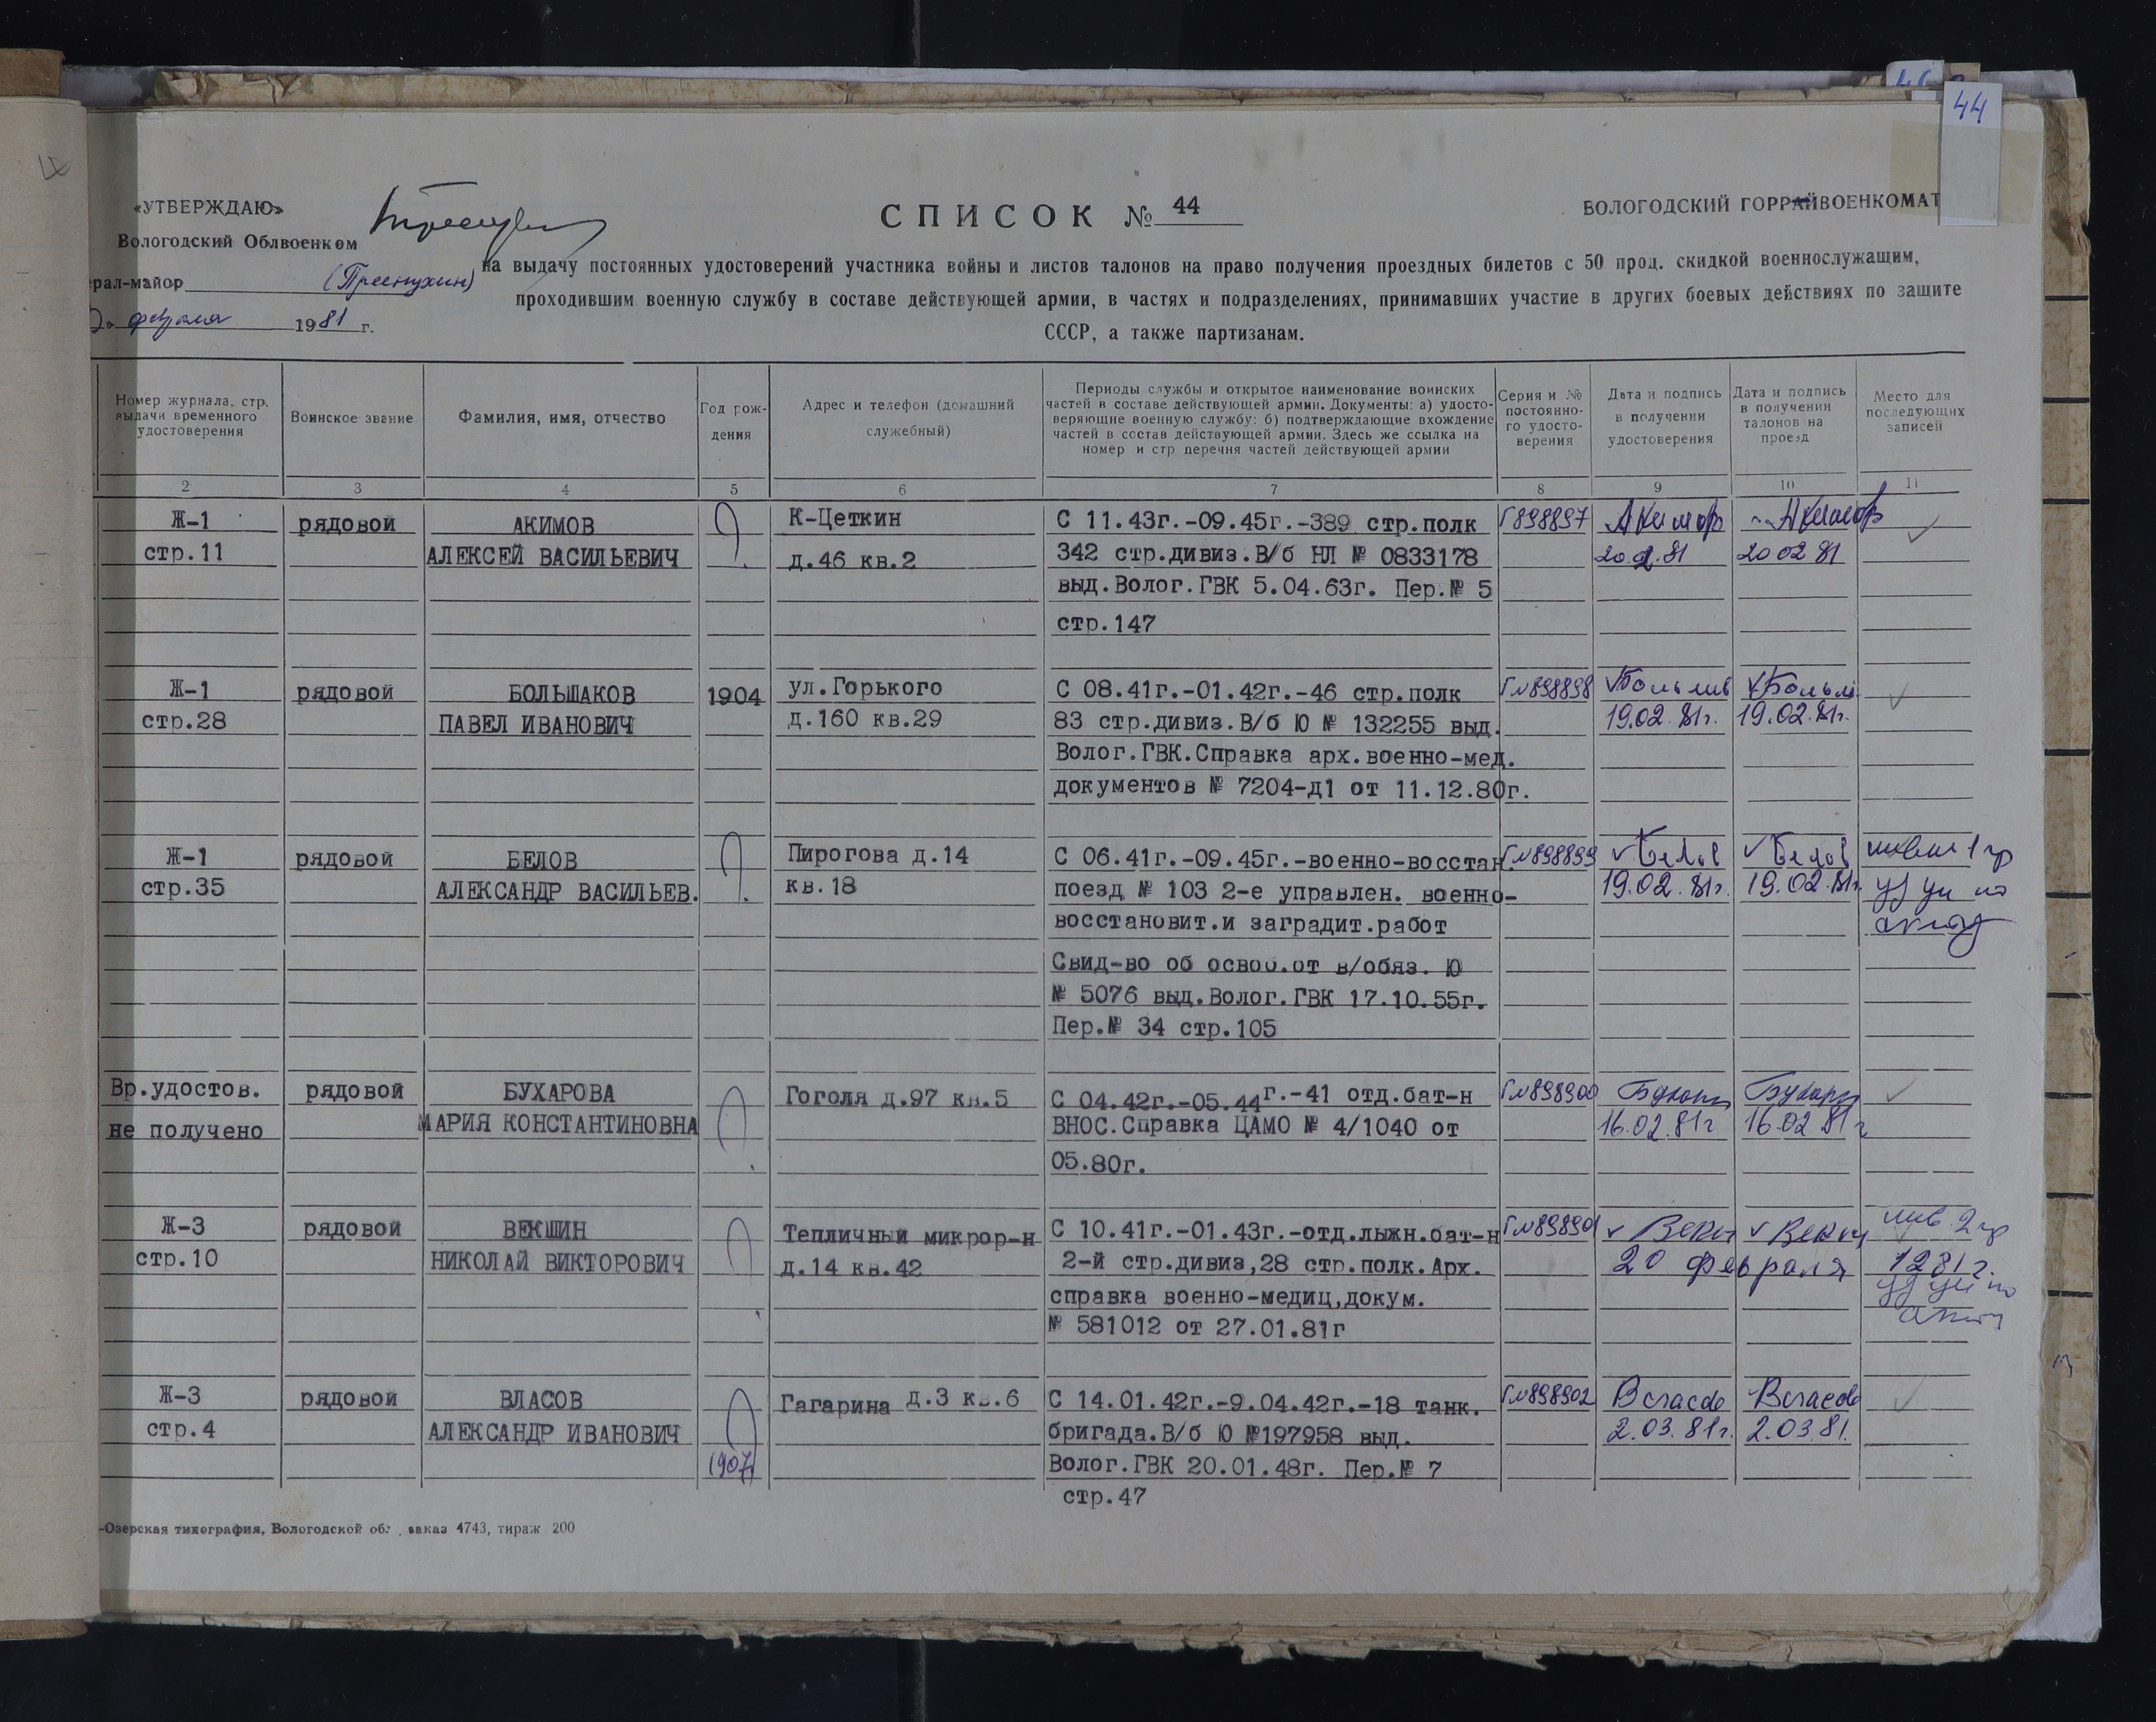 44
«УТВЕРЖДАЮ»
Вологодский Облвоенком
рал-майор (Преснухин)
февраля 1981 г.
СПИСОК № 44
ВОЛОГОДСКИЙ ГОРРАЙВОЕНКОМАТ
на выдачу постоянных удостоверений участника войны и листов талонов на право получения проездных билетов с 50 прод. скидкой военнослужащим,
проходившим военную службу в составе действующей армии, в частях и подразделениях, принимавших участие в других боевых действиях по защите
СССР, а также партизанам.
Номер журнала, стр. выдачи временного удостоверения
Воинское звание
Фамилия, имя, отчество
Год рож-
дения
Адрес и телефон (домашний
служебный)
Периоды службы и открытое наименование воинских
частей в составе действующей армии. Документы: а) удосто-
веряющие военную службу; б) подтверждающие вхождение
частей в состав действующей армии. Здесь же ссылка на
номер и стр перечня частей действующей армии
Серия и №
постоянно-
го удосто-
верения
Дата и подпись
в получении
удостоверения
Дата и подпись
в получении
талонов на
проезд
Место для
последующих
записей
2 3 4 5 6 7 8 9 10 11
Ж-1
стр.11
рядовой
АКИМОВ
АЛЕКСЕЙ ВАСИЛЬЕВИЧ
К-Цеткин
д.46 кв.2
С 11.43г.-09.45г.-389 стр.полк
342 стр.дивиз.В/б НЛ № 0833178
выд.Волог.ГВК 5.04.63г. Пер.№ 5
стр.147
Г898897
Акимов
20.2.81
Акимов
20 02 81
Ж-1
стр.28
рядовой
БОЛЬШАКОВ
ПАВЕЛ ИВАНОВИЧ
1904
ул.Горького
д.160 кв.29
С 08.41г.-01.42г.-46 стр.полк
83 стр.дивиз.В/б Ю № 132255 выд.
Волог.ГВК.Справка арх.военно-мед.
документов № 7204-д1 от 11.12.80г.
Г№898898
19.02.81г.
19.02.81г.
Ж-1
стр.35
рядовой
БЕЛОВ
АЛЕКСАНДР ВАСИЛЬЕВ.
Пирогова д.14
кв.18
С 06.41г.-09.45г.-военно-восстан.
поезд № 103 2-е управлен. военно-
восстановит.и заградит.работ
Свид-во об освоб.от в/обяз. Ю
№ 5076 выд.Волог.ГВК 17.10.55г.
Пер.№ 34 стр.105
Г№898899
Белов
19.02.81г.
Белов
19.02.81г.
1 гр
по
акту
Вр.удостов.
не получено
рядовой
БУХАРОВА
МАРИЯ КОНСТАНТИНОВНА
Гоголя д.97 кв.5
С 04.42г.-05.44г.-41 отд.бат-н
ВНОС.Справка ЦАМО № 4/1040 от
05.80г.
Г№898900
16.02.81г
16.02 81г
Ж-3
стр.10
рядовой
ВЕКШИН
НИКОЛАЙ ВИКТОРОВИЧ
Тепличный микрор-н
д.14 кв.42
С 10.41г.-01.43г.-отд.лыжн.бат-н
2-й стр.дивиз,28 стр.полк.Арх.
справка военно-медиц,докум.
№ 581012 от 27.01.81г
Г№898901
20 февраля
инв. 2 гр
1281г.
по
акту
Ж-3
стр.4
рядовой
ВЛАСОВ
АЛЕКСАНДР ИВАНОВИЧ
1907
Гагарина д.3 кв.6
С 14.01.42г.-9.04.42г.-18 танк.
бригада.В/б Ю №197958 выд.
Волог.ГВК 20.01.48г. Пер.№ 7
стр.47
Г№898902
Власов
2.03.81г.
Власов
2.03.81.
-Озерская типография, Вологодской обл, заказ 4743, тираж 200